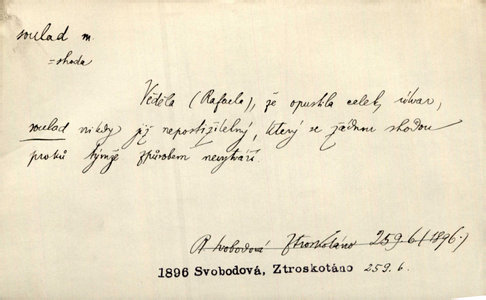 soulad m.
= shoda
Věděla (Rafaela), že opustila celek, útvar,
soulad nikdy jí nepostižitelný, který se žádnou shodou
prvků týmže způsobem nevytváří.
R Svobodová Ztroskotáno 259.6 (1896.)
1896 Svobodová, Ztroskotáno 259.6.